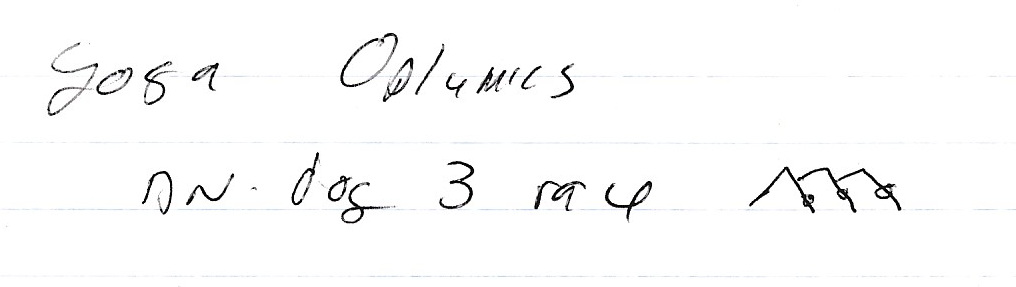 Yoga Oplymics
DN. dog 3 ray